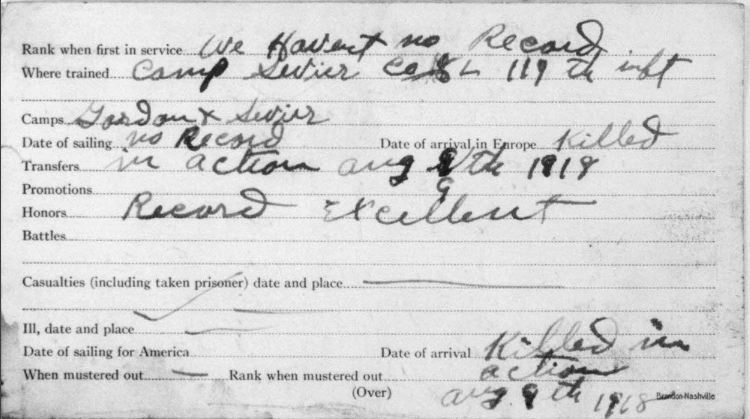 Rank when first in service We Havent no Record
Where trained Camp Sevier Co L 119 th inft
Camps Gordon & Sevier
Date of sailing no Record Date of arrival in Europe Killed
Transfers in action aug 9th 1918
Promotions 9
Honors Record Excellent
Battles
Casualties (including taken prisoner) date and place
Ill, date and place
Date of sailing for America Date of arrival Killed in
When mustered out Rank when mustered out action
(Over) aug 9th 1918 Brandon-Nashville